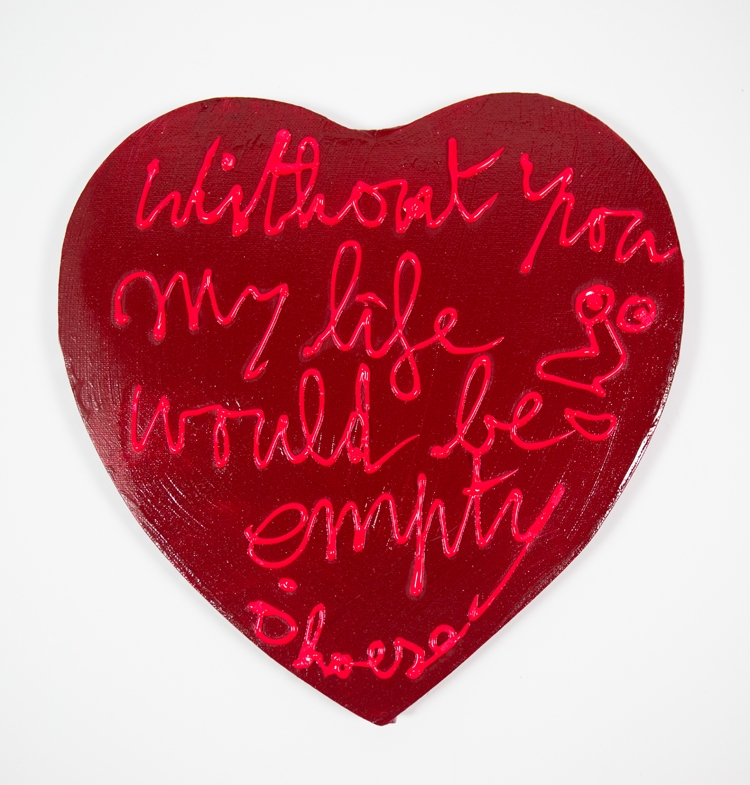 Without you
my life
would be
empty